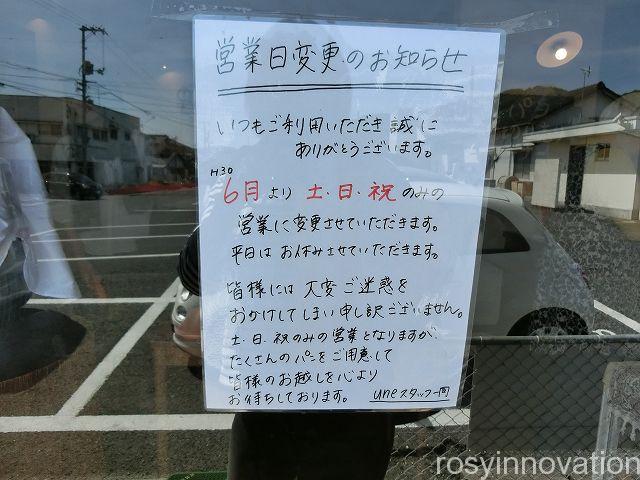 営業日変更のお知らせ
いつもご利用いただき誠に
ありがとうございます。
H30
6月より 土・日・祝のみの
営業に変更させていただきます。
平日はお休みさせていただきます。
皆様には大変ご迷惑を
おかけしてしまい申し訳ございません。
土・日・祝のみの営業となりますが、
たくさんのパンをご用意して
皆様のお越しを心より
お待ちしております。 uneスタッフ一同
rosyinnovation